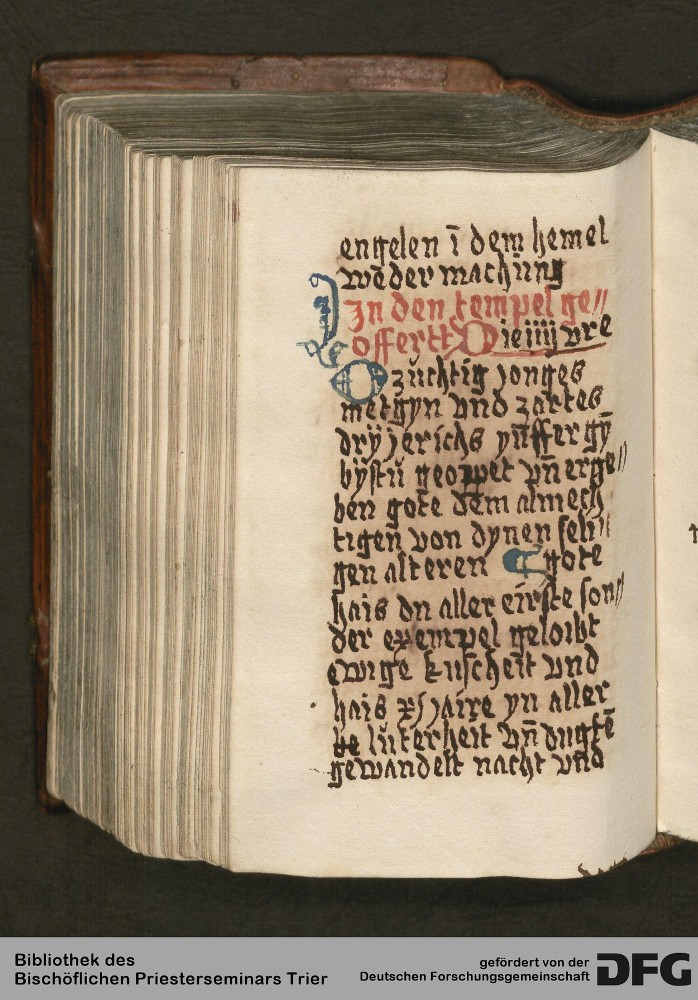 engelen ī dem hemel
wēder machūng
In den tempel ge〃
offertt Die iiij vre
O zuchtig jonges
metgyn vnd zartes
drÿ jerichs yūffergȳ
bÿstu geoppet vn̄ erge〃
ben gote dem almech
tigen von dynen seli〃
gen alteren gote
hais du aller eirste son〃
der exempel geloibt
ewige kuscheit vnd
hais xj jaire yn aller
luterheit vn̄ dugtē
gewandelt nacht vnd
Bibliothek des
Bischöflichen Priesterseminars Trier
gefördert von der
Deutschen Forschungsgemeinschaft
DFG